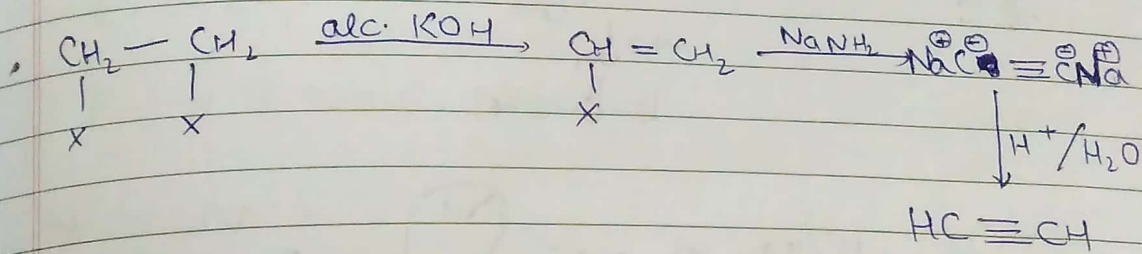 CH₂ — CH₂ alc. KOH → CH = CH₂ NaNH₂ → Na⊕C⊖ ≡ C⊖Na⊕
X X X
H⁺/H₂O
HC ≡ CH